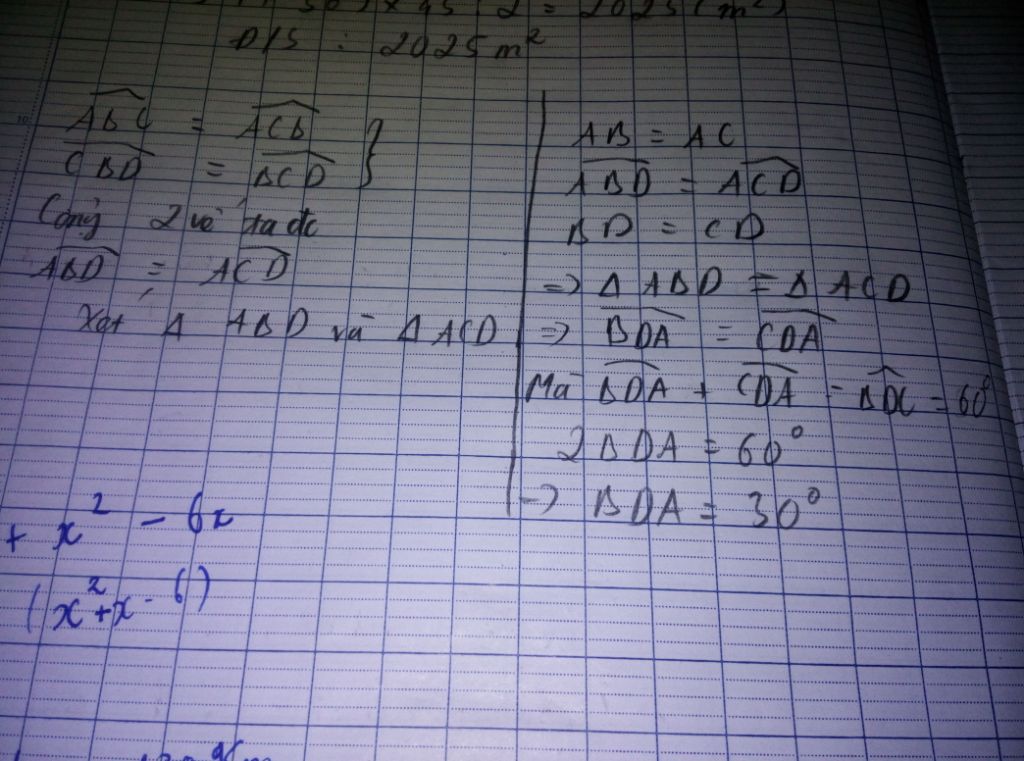 2 = 2025 (m²)
D/S : 2025 m²
ABC = ACB }
CBD = BCD
Cộng 2 vế ta đc
ABD = ACD
Xét Δ ABD và Δ ACD
AB = AC
ABD = ACD
BD = CD
=> Δ ABD = Δ ACD
=> BDA = CDA
Mà BDA + CDA = BDC = 60°
2BDA = 60°
-> BDA = 30°
+ x² - 6x
(x² + x - 6)